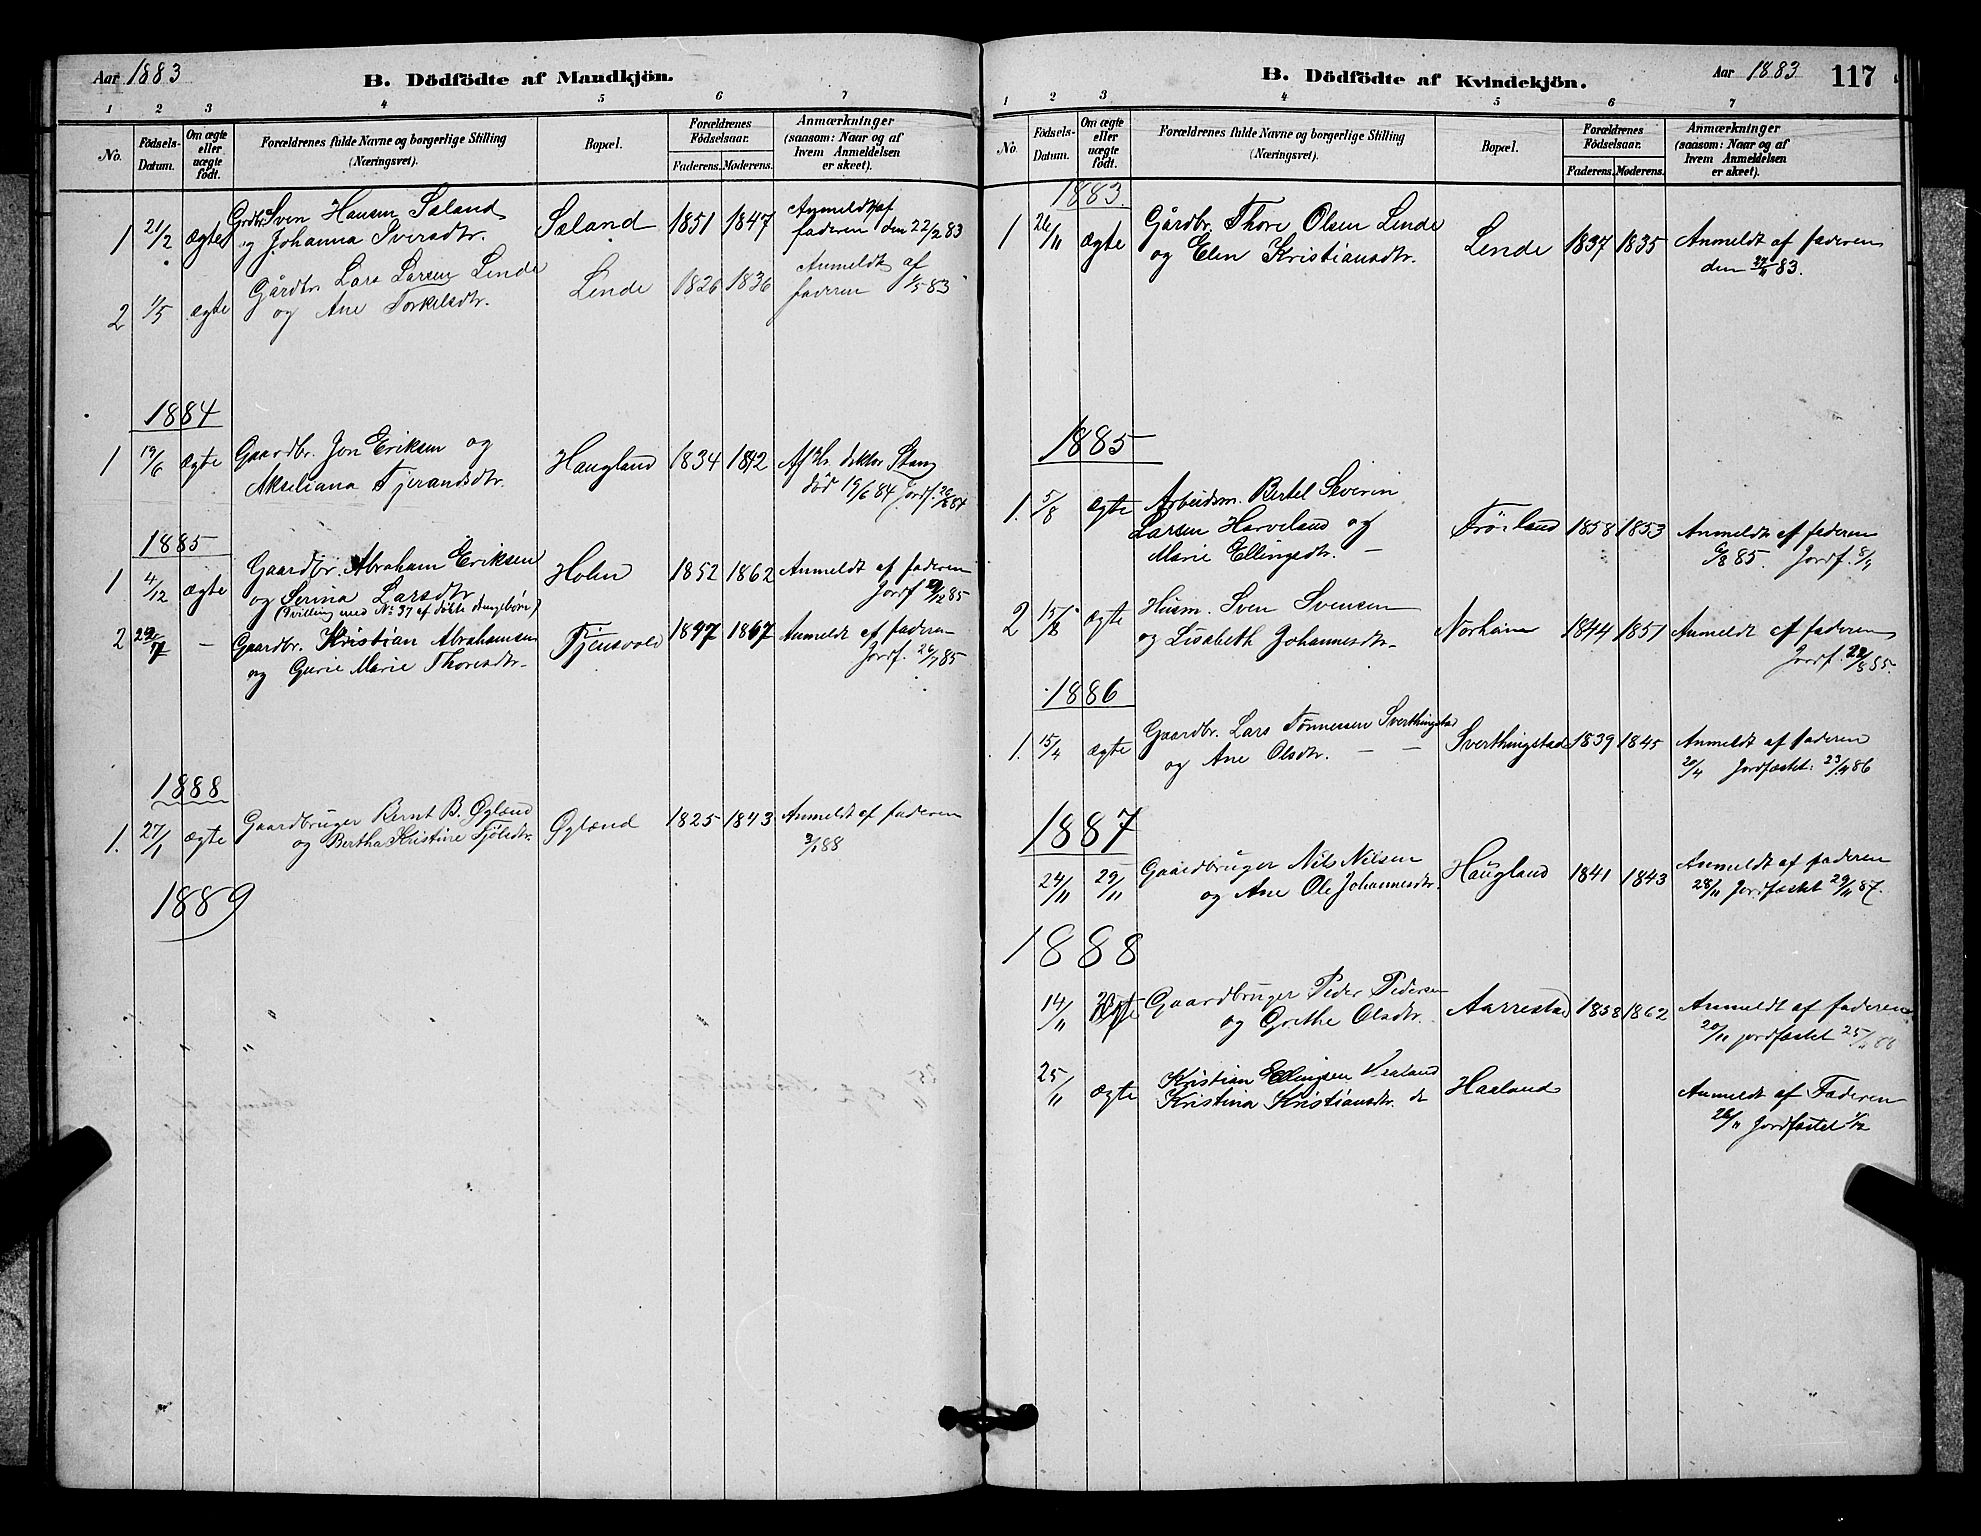 Aar 1883
B. Dödfödte af Mandkjön.
1 2 3 4 5 6 7
No.
Födsels-Datum.
Om ægte eller uægte födt.
Forældrenes fulde Navne og borgerlige Stilling (Næringsvei).
Bopæl.
Forældrenes Födselsaar.
Faderens. Moderens.
Anmærkninger (saasom: Naar og af hvem Anmeldelsen er skeet).
1 21/2 ægte Grdbr. Sven Hansen Saland Saland 1851 1847 Anmeldt af
og Johanna Iversdtr. faderen den 22/2 83
2 1/5 ægte Gårdbr. Lars Larsen Linde Linde 1826 1836 Anmeldt af
og Ane Torkelsdtr. faderen 1/5 83
1884
1 19/6 ægte Gaardbr. Jon Eriksen og Haugland 1834 1842 Af Hr. doktor Stang
Akseliana Tjerandsdtr. död 19/6 84 Jordf.
1885
1 4/12 ægte Gaardbr. Abraham Eriksen Holen 1852 1862 Anmeldt af faderen
og Serina Larsdtr. Jordf.
(Tvilling med No 37 af döbte drengebörn)
2 7 — Gaardbr. Kristian Abrahamsen Tjensvold 1867 Anmeldt af faderen
og Gurie Marie Thoresdtr. Jordf. 26/7 85
1888
1. 27/1 ægte Gaardbruger Bernt B. Øgland Øgland 1825 1843 Anmeldt af faderen
og Bertha Kristine Fjölsdtr. 88
1889
Aar 1883
117
B. Dödfödte af Kvindekjön.
1 2 3 4 5 6 7
No.
Födsels-Datum.
Om ægte eller uægte födt.
Forældrenes fulde Navne og borgerlige Stilling (Næringsvei).
Bopæl.
Forældrenes Födselsaar.
Faderens. Moderens.
Anmærkninger (saasom: Naar og af hvem Anmeldelsen er skeet).
1883.
1 26/11 ægte Gårdbr. Thore Olsen Linde Linde 1837 1835 Anmeldt af faderen
og Elen Kristiansdtr. den 83.
1885
1. 5/8 ægte Arbeidsm. Bertel Severin
Larsen Harveland og Fröiland 1858 1853 Anmeldt af faderen
Marie Ellingsdtr. — 6/8 85. Jordf.
2 15/8 ægte Husm. Sven Svensen Norheim 1844 1851 Anmeldt af faderen
og Lisabeth Johannesdtr. Jordf.
1886
1. 15/4 ægte Gaardbr. Lars Tönnessen Sverthingstad Sverthingstad 1839 1845 Anmeldt af faderen
og Ane Olsdtr. — — 20/4 Jordfæstet: 23/4 86
1887
24/11 29/11 Gaardbruger Nils Nilsen Haugland 1841 1843 Anmeldt af faderen
og Ane Ole Johannesdtr. 28/11 Jordfæstet 29/11 87.
1888
14/11 Gaardbruger Peder Pedersen Aarrestad 1858 1862 Anmeldt af faderen
og Grethe Olsdtr. 20/11 jordfæstet 25/11 88
25/11 ægte Kristian Ellingsen Haaland Anmeldt af Faderen
Kristina Kristiansdtr. 26/11 Jordfæstet 1/12